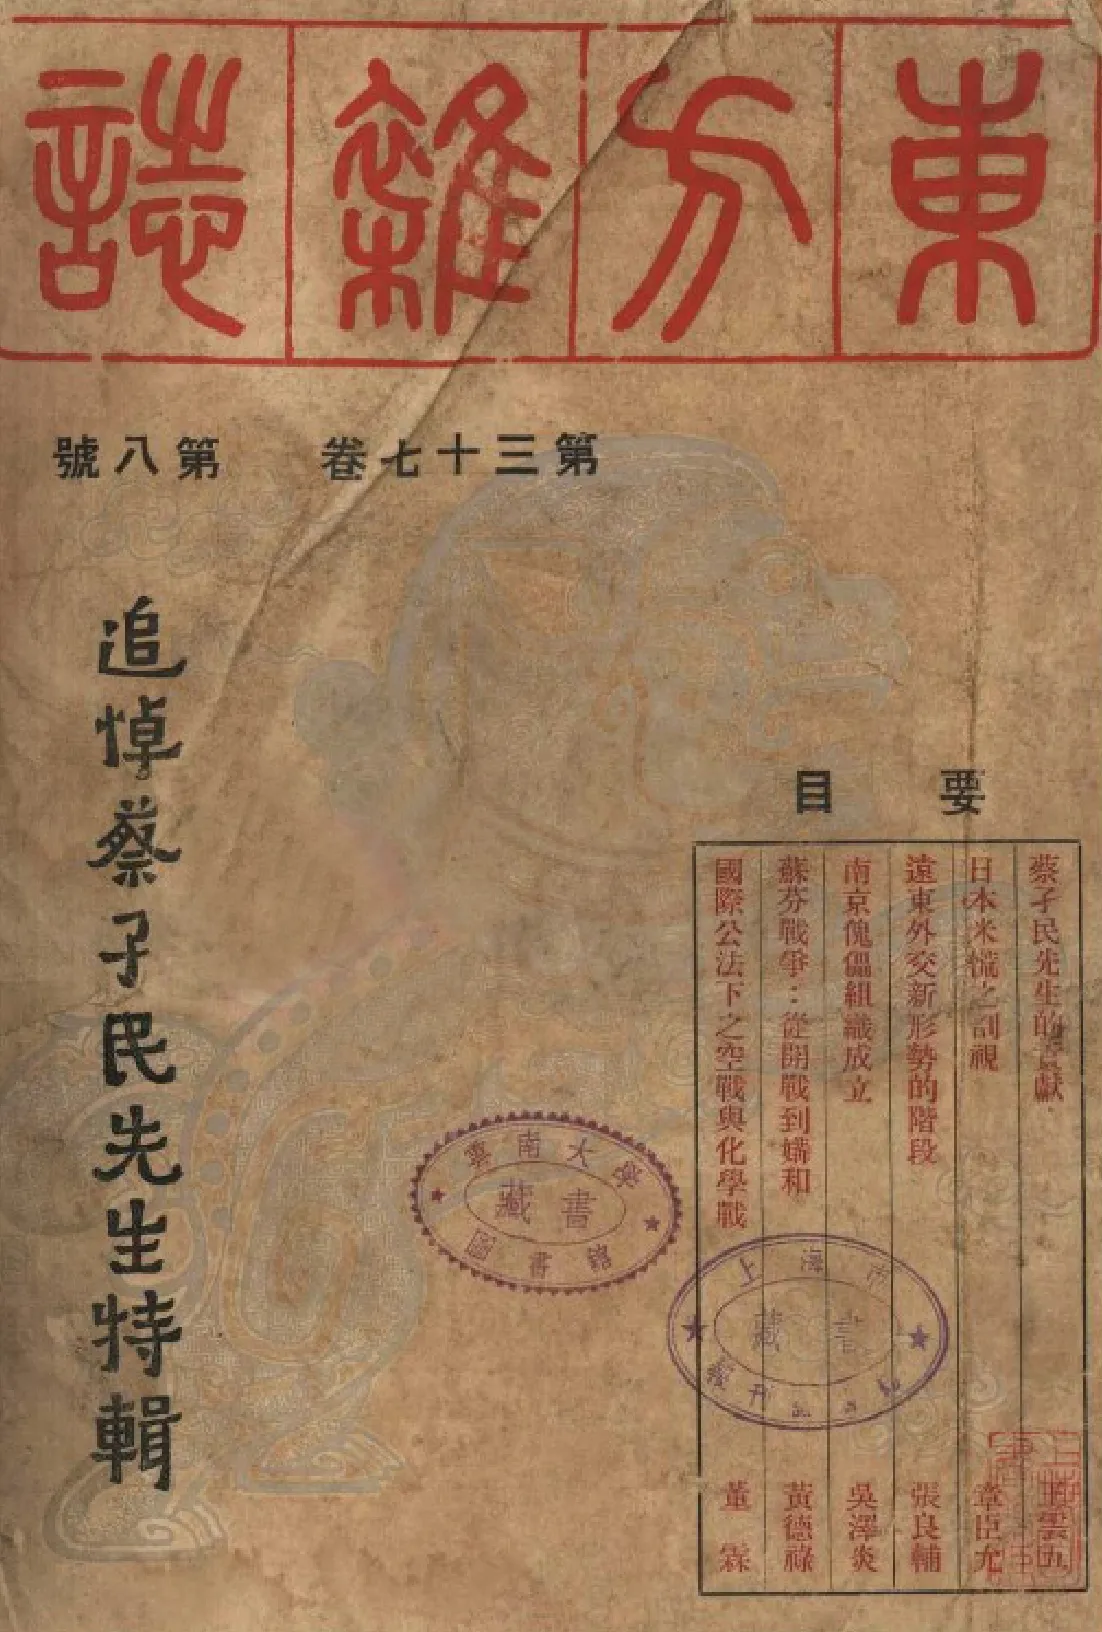 東方雜誌
第三十七卷 第八號
追悼蔡孑民先生特輯
要目
蔡孑民先生的貢獻 王雲五
日本米慌之剖視 章臣允
遠東外交新形勢的階段 張良輔
南京傀儡組織成立 吳澤炎
蘇芬戰爭：從開戰到媾和 黃德祿
國際公法下之空戰與化學戰 董霖
雲南大學
圖書館
藏書
上海市
報刊
藏書